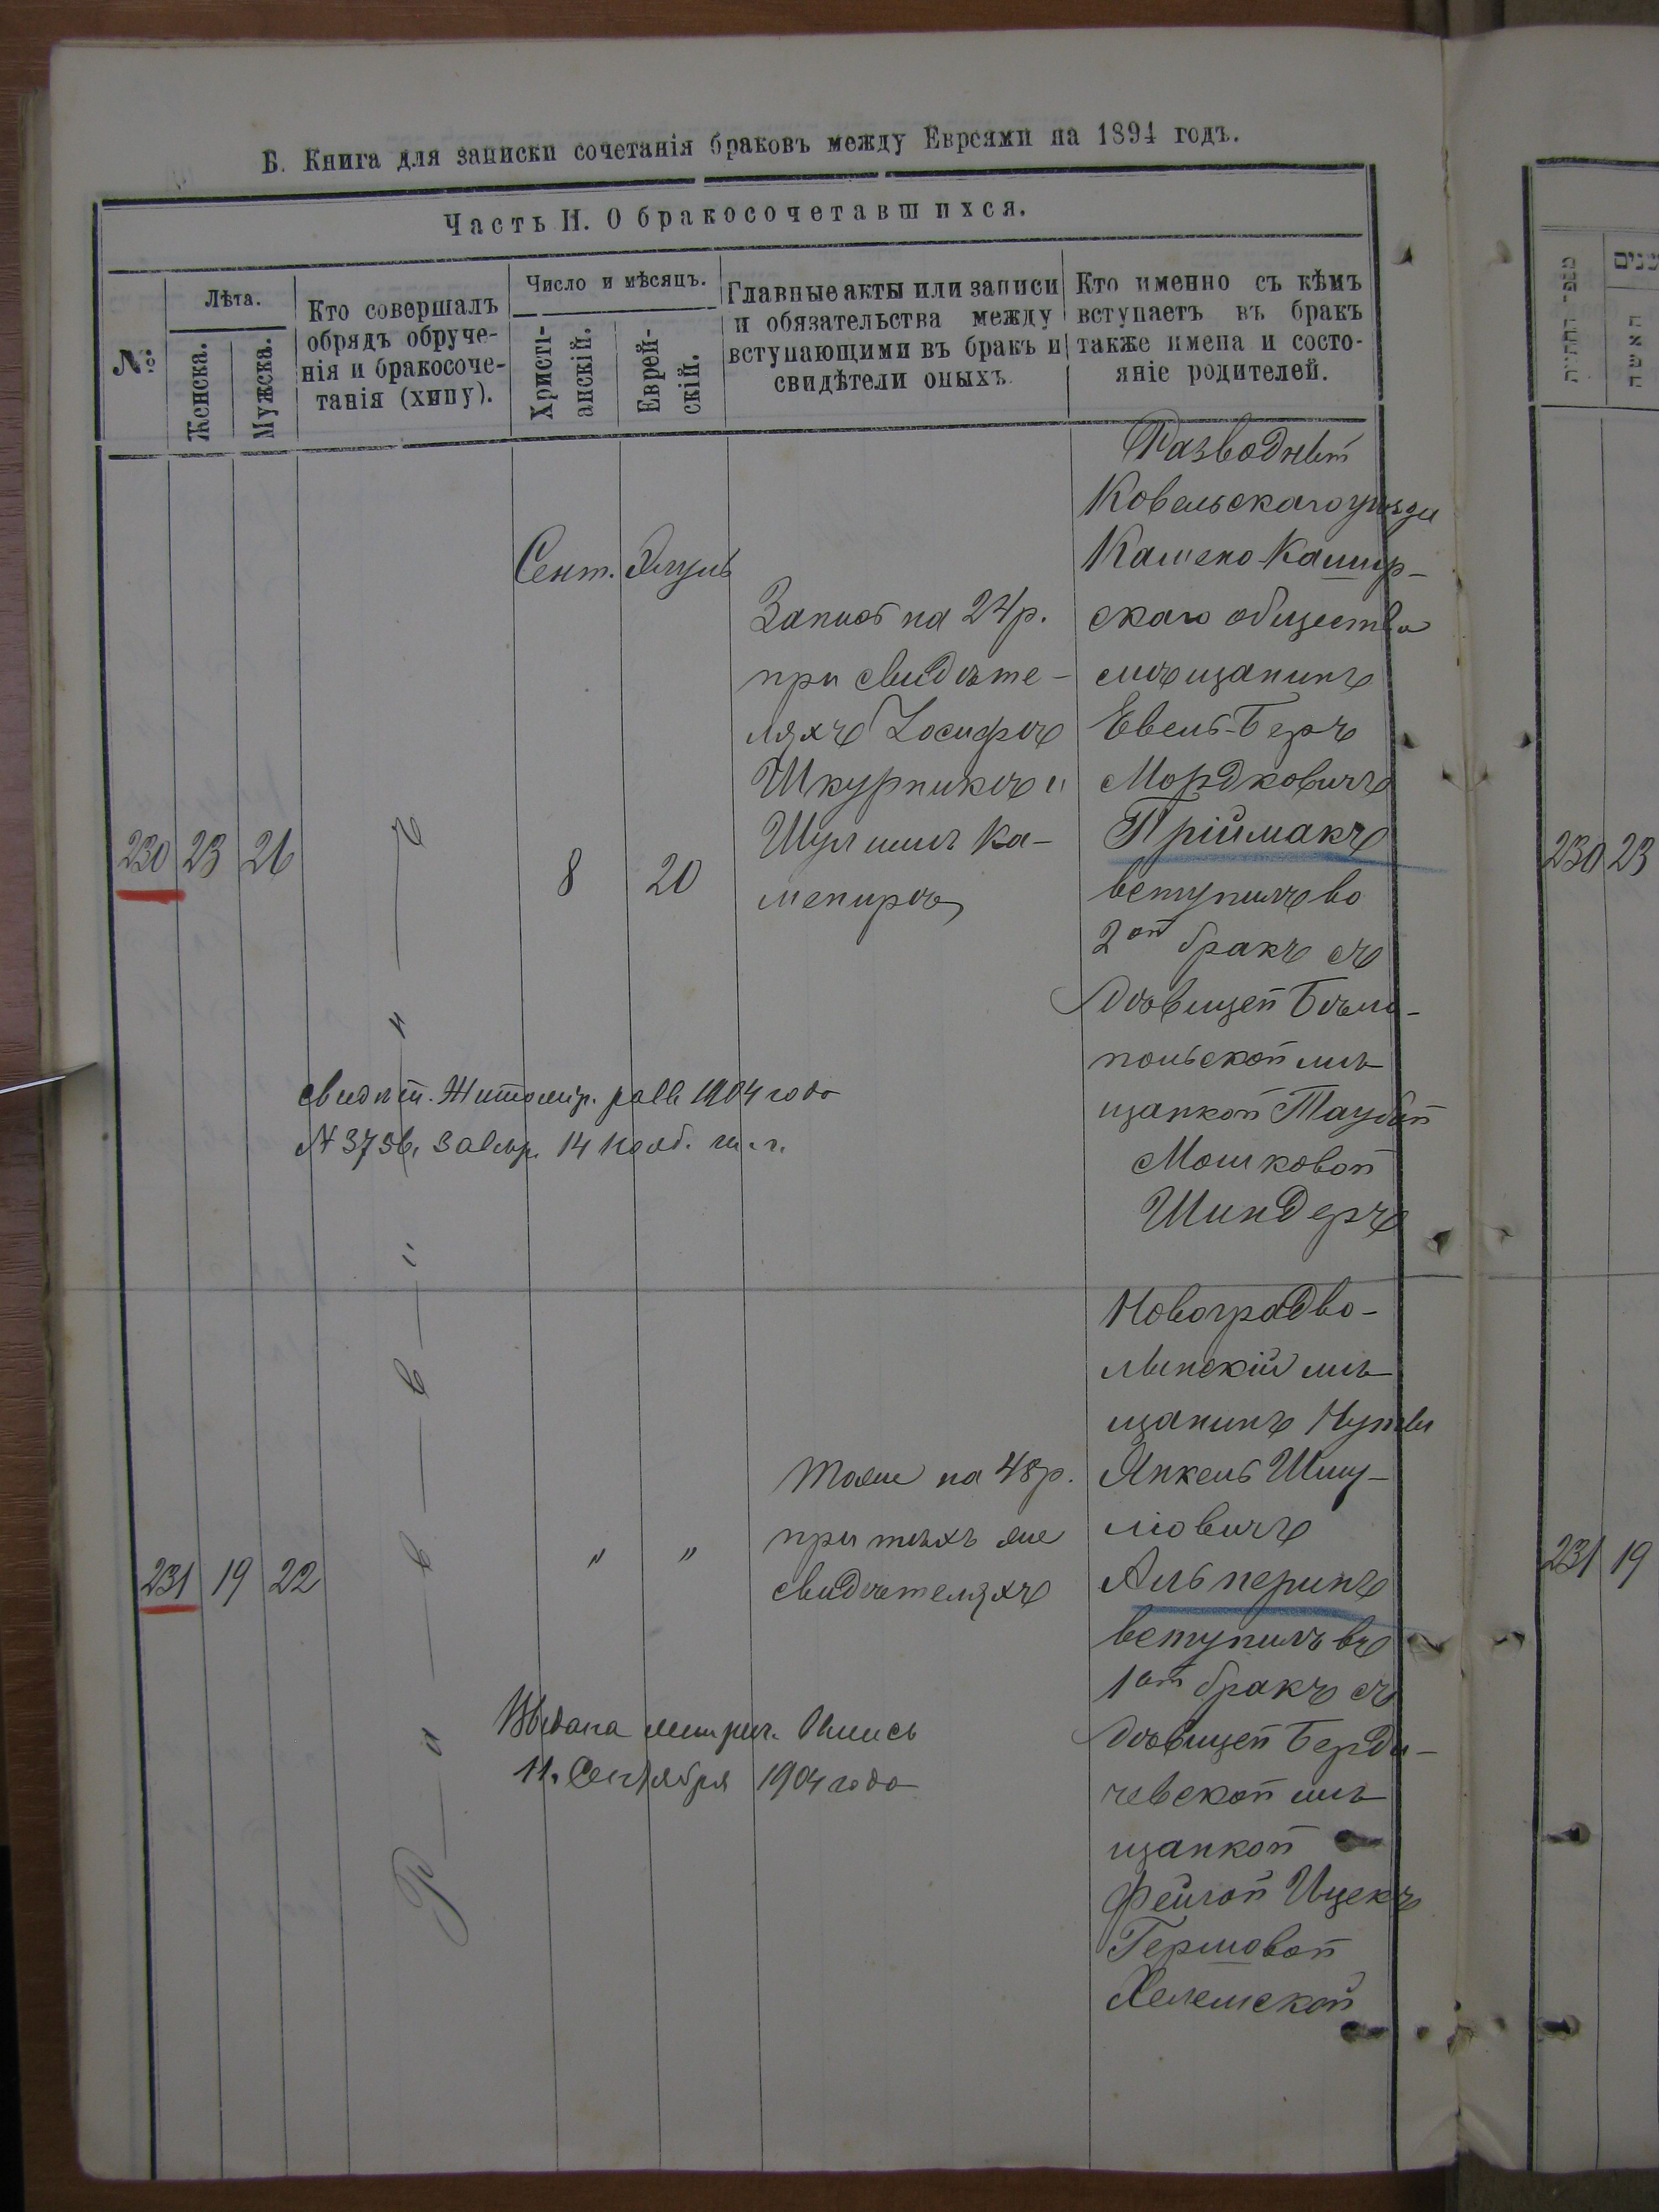 Б. Книга для записки сочетанія браковъ между Евреями на 1894 годъ.
Часть II. О бракосочетавшихся.
№
Лѣта.
Женска.
Мужска.
Кто совершалъ
обрядъ обруче-
нія и бракосоче-
танія (хипу).
Число и мѣсяцъ.
Христі-
анскій.
Еврей-
скій.
Главные акты или записи
и обязательства между
вступающими въ бракъ и
свидѣтели оныхъ.
Кто именно съ кѣмъ
вступаетъ въ бракъ
также имена и состо-
яніе родителей.
230
23
26
Р а в в и н ъ
Сент.
8
Элуль
20
Запись на 24р.
при свидѣте-
ляхъ Іосифѣ
Шкурникѣ и
Шулимѣ Ка-
менирѣ
Разводный
Ковельскаго уѣзда
Камено-Кашир-
скаго общества
мѣщанинъ
Евель-Беръ
Мордковичъ
Пріймакъ
вступилъ во
2ой бракъ съ
дѣвицей Бѣло-
польской мѣ-
щанкой Таубой
Мошковой
Шиндеръ
свидѣт. Житомир. равв. 1904 года
№ 3736. 14 нояб. т. г.
231
19
22
"
"
Тоже на 48р.
при тѣхъ же
свидѣтеляхъ
Новоградво-
лынскій мѣ-
щанинъ
Янкель Шму-
ліовичъ
Альперинъ
вступилъ въ
1ой бракъ съ
дѣвицей Берди-
чевской мѣ-
щанкой
Фейгой Ицекъ
Гершовой
Хелемской
Выдана метрич. выпись
11. Сентября 1904 года
מספר החתונות
שנים
האשה
230 23
231 19